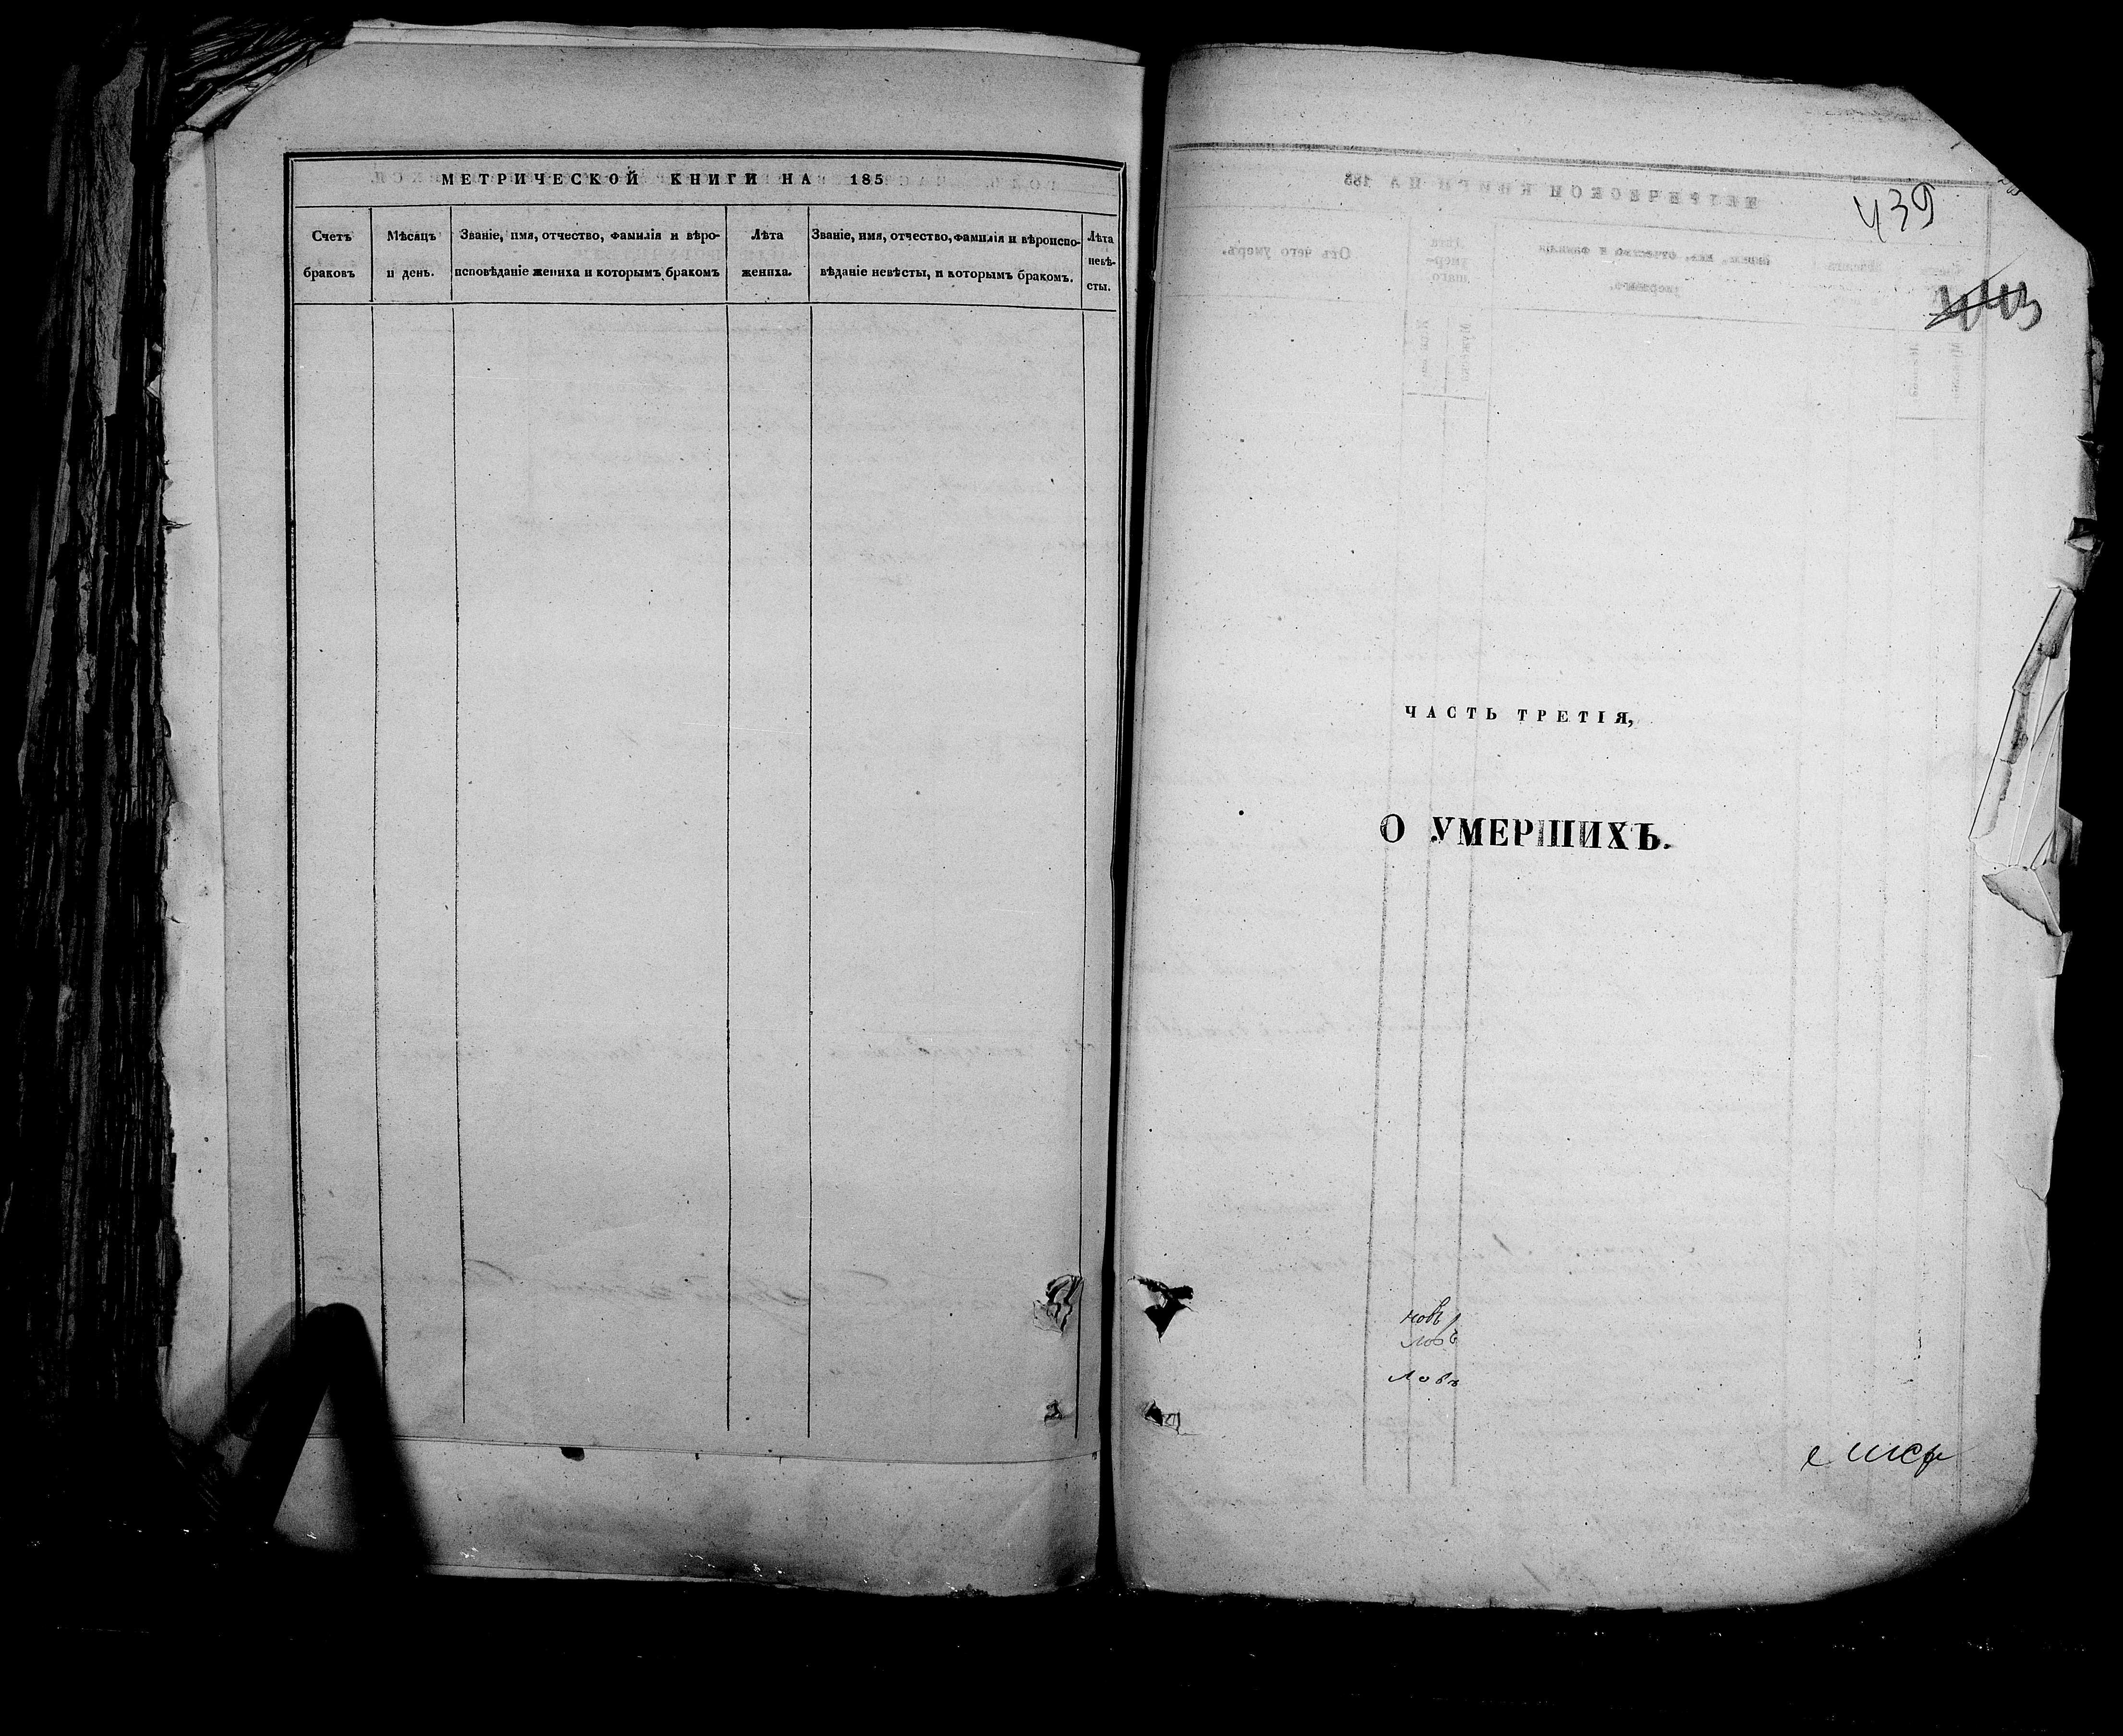 МЕТРИЧЕСКОЙ КНИГИ НА 185
Счетъ браковъ
Мѣсяцъ и день.
Званіе, имя, отчество, фамилія и вѣроисповѣданіе жениха и которымъ бракомъ
Лѣта жениха.
Званіе, имя, отчество, фамилія и вѣроисповѣданіе невѣсты, и которымъ бракомъ.
Лѣта невѣсты.
439
443
ЧАСТЬ ТРЕТІЯ,
О УМЕРШИХЪ.
новъ
ловъ
ловъ